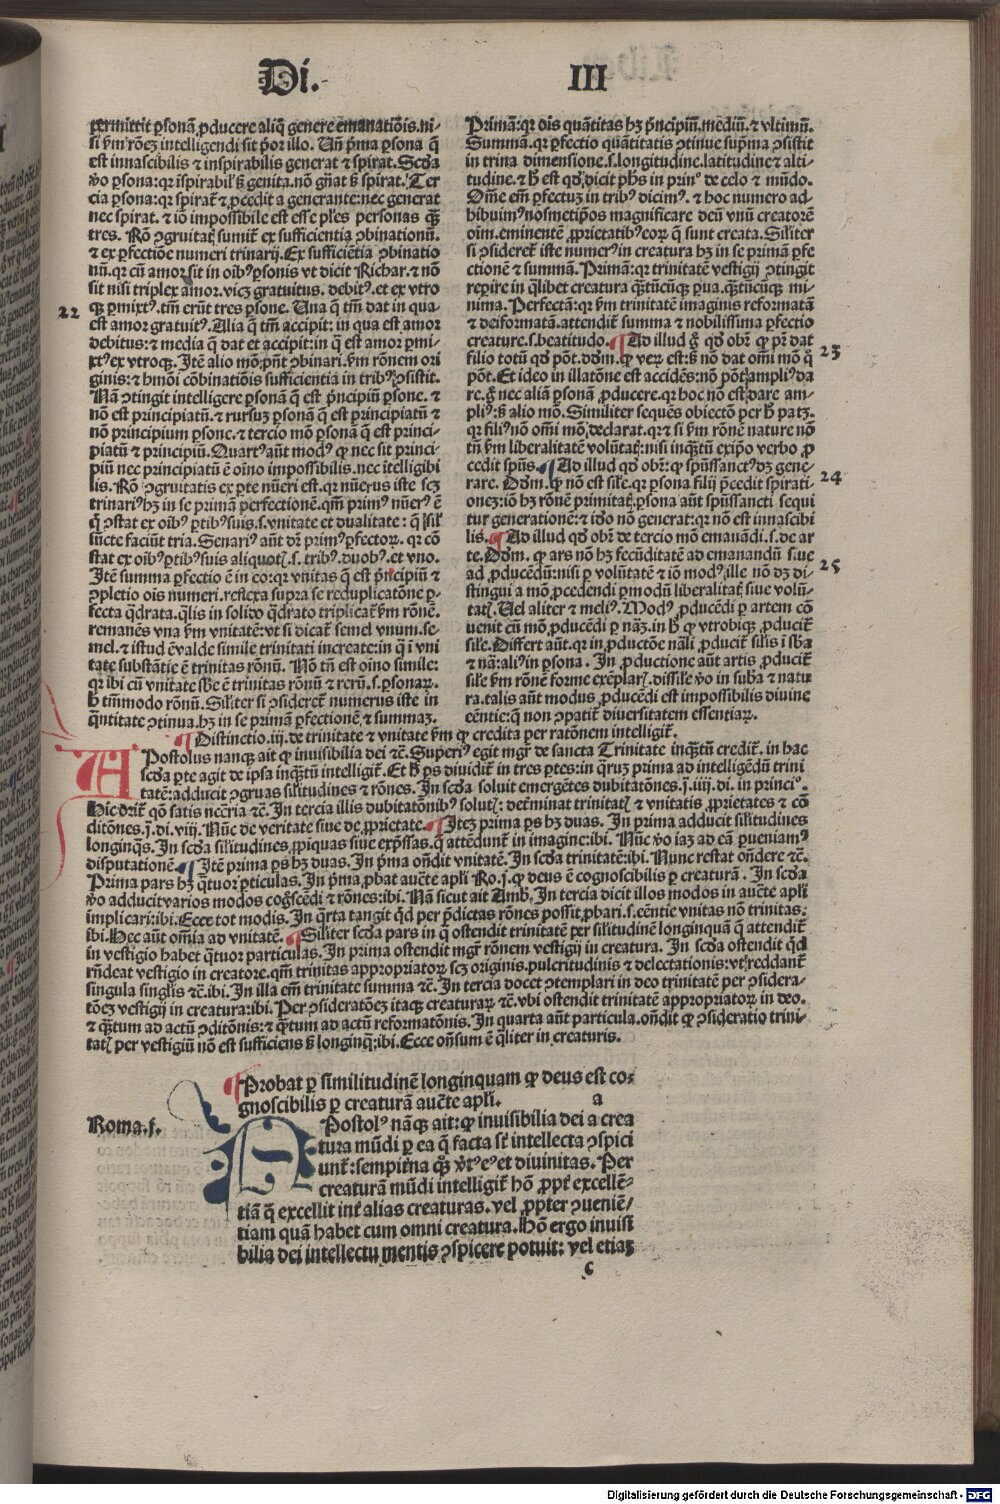 Di. III
permittit ꝑsonã ꝓducere aliq̃ genere emanatiõis.ni-
si ẜm rõez intelligendi sit p̃or illo. Uñ p̃ma ꝑsona q̃
est innascibilis ⁊ inspirabilis generat ⁊ spirat. Scďa
ꝟo ꝑsona:qꝛ ĩspirabil̛ ꝫ genita.nõ gñat ꝫ spirat. Ter
cia ꝑsona:qꝛ spirat̃ ⁊ ꝓcedit a generante:nec generat
nec spirat. ⁊ iõ impossibile est esse pl̃es personas q̃ꝫ
tres. Rõ ꝯgruitatꝭ sumit̃ ex sufficientia ꝯbinationũ.
⁊ ex ꝑfectiõe numeri trinarij. Ex sufficiẽtia ꝯbinatio
nũ.qꝛ cũ amor sit in oĩbꝰ ꝑsonis vt dicit Richar. ⁊ nõ
sit nisi triplex amor.vicꝫ gratuitus. debitꝰ. et ex vtro
qꝫ ꝑmixtꝰ. tm̃ erũt tres ꝑsone. Una q̃ tm̃ dat in qua-
22
est amor gratuitꝰ. Alia q̃ tm̃ accipit: in qua est amor
debitus: ⁊ media q̃ dat et accipit:in q̃ est amor ꝑmi-
xtꝰ ex vtroqꝫ. Itẽ alio mõ: pñt ꝯbinari. ẜm rõnem ori
ginis: ⁊ hmõi cõbinatiõis sufficientia in tribꝰ ꝯsistit.
Nã ꝯtingit intelligere ꝑsonã q̃ est p̃ncipiũ ꝑsone. ⁊
nõ est principiatũ. ⁊ rursuꝫ ꝑsonã q̃ est principiatũ ⁊
nõ principium ꝑsone.⁊ tercio mõ ꝑsonã q̃ est princi-
piatũ ⁊ principiũ. Quartꝰ aũt modꝰ ꝙ nec sit princi-
piũ nec principiatũ ẽ oĩno impossibilis. nec ĩtelligibi
lis. Rõ ꝯgruitatis ex ꝑte nũeri est. qꝛ nũerus iste scꝫ
trinariꝰ hꝫ in se primã ꝑfectionẽ. qm̃ primꝰ nũerꝰ ẽ
q̃ ꝯstat ex oĩbꝰ ꝑtibꝰ suis. s. vnitate et dualitate : q̃ sil̛
iũcte faciũt tria. Senariꝰ aũt dr̃ primꝰ ꝑfectoꝝ. qꝛ cõ
stat ex oĩbꝰ ꝑtibꝰ suis aliquotꝭ .s. tribꝰ. duobꝰ. et vno.
Itẽ summa ꝑfectio ẽ in eo: qꝛ vnitas q̃ est p̃ncipiũ ⁊
ꝯpletio oĩs numeri. reflexa supra se reduplicatõne ꝑ-
fecta q̃drata. q̃lis in solido q̃drato triplicat̃ ẜm rõnẽ.
remanẽs vna ẜm vnitatẽ: vt si dicat̃ semel vnum. se-
mel. ⁊ istud ẽ valde simile trinitati increate: in q̃ ĩ vni
tate substãtie ẽ trinitas rõnũ. Nõ tñ est oĩno simile:
qꝛ ibi cũ vnitate sb̃e ẽ trinitas rõnũ ⁊ rerũ.s. ꝑsonaꝝ.
ꝫ tm̃modo rõnũ. Silĩter si ꝯsideret̃ numerus iste in
q̃ntitate ꝯtinua. hꝫ in se primã ꝑfectionẽ, ⁊ summaꝫ.
Primã: qꝛ oĩs quãtitas hꝫ p̃ncipiũ. mediũ. ⁊ vltimũ.
Summã. qꝛ ꝑfectio quãtitatis ꝯtinue sup̃ma ꝯsistit
in trina dimensione. s. longitudine. latitudine ⁊ alti-
tudine. ⁊ h̃ est qd̛ dicit ph̃s in prinº de celo ⁊ mũdo.
Om̃e em̃ ꝑfectuꝫ in tribꝰ dicimꝰ. ⁊ hoc numero ad-
hibuimꝰ nosmetip̃os magnificare deũ vnũ creatorẽ
oĩm. eminentẽ ꝓprietatibꝰ eoꝝ q̃ sunt creata. Silĩter
si ꝯsideret̃ iste numerꝰ in creatura hꝫ in se primã ꝑfe
ctionẽ ⁊ summã. Primã: qꝛ trinitatẽ vestigij ꝯtingit
reꝑire in q̃libet creatura q̃ꝫtũcũqꝫ ꝑua. q̃ꝫtũcũqꝫ mi-
nima. Perfectã: qꝛ ẜm trinitatẽ imaginis reformatã
⁊ deiformatã. attendit̃ summa ⁊ nobilissima ꝑfectio
creature. s. beatitudo. ¶ Ad illud g̃ qd̛ obr̃ ꝙ pr̃ dat
23
filio totũ qd̛ põt. dõm. ꝙ veꝝ est: ꝫ nõ dat om̃i mõ q̃
põt. Et ideo in illatõne est accidẽs: nõ põt ampliꝰ da
re. g̃ nec aliã ꝑsonã ꝓducere. qꝛ hoc nõ est dare am-
pliꝰ: ꝫ alio mõ. Similiter sequẽs obiectõ per h̃ patꝫ.
qꝛ filiꝰ nõ om̃i mõ declarat. qꝛ ⁊ si ẜm rõnẽ nature nõ
tñ ẜm liberalitatẽ volũtatꝭ: nisi inqꝫtũ exip̃o verbo ꝓ
cedit spũs. ¶ Ad illud qd̛ obr̃: ꝙ spũssanctꝰ dꝫ gene-
24
rare. Dõm. ꝙ nõ est sil̃e. qꝛ ꝑsona filij p̃cedit spirati-
oneꝫ: iõ hꝫ rõnẽ primitatꝭ. ꝑsona aũt spũssancti sequi
tur generationẽ: ⁊ iďo nõ generat: qꝛ nõ est innascibi
lis. ¶ Ad illud qd̛ obr̃ de tercio mõ emanãdi. s. de ar
te. Dõm. ꝙ ars nõ hꝫ fecũditatẽ ad emanandũ siue
25
ad ꝓducẽdũ: nisi ꝑ volũtatẽ ⁊ iõ modꝰ ille nõ dꝫ di-
stingui a mõ ꝓcedendi ꝑ modũ liberalitatꝭ siue volũ-
tatꝭ. Uel aliter ⁊ meliꝰ. Modꝰ ꝓducẽdi ꝑ artem cõ
uenit cũ mõ ꝓducẽdi ꝑ nãꝫ. in h̃ ꝙ vtrobiqꝫ ꝓducit̃
sil̃e. Differt aũt. qꝛ in ꝓductõe nãli ꝓducit̃ sil̃is ĩ sb̃a
⁊ nã: aliꝰ in ꝑsona. In ꝓductione aũt artis ꝓducit̃
sil̃e ẜm rõnẽ forme exẽplarꝭ. dissil̃e ꝟo in sub̃a ⁊ natu
ra. talis aũt modus ꝓducẽdi est impossibilis diuine
eẽntie: q̃ non ꝯpatit̃ diuersitatem essentiaꝝ.
¶ Distinctio .iij. de trinitate ⁊ vnitate ẜm ꝙ credita per ratõnem intelligit̃.
APostolus nanqꝫ ait ꝙ inuisibilia dei ⁊c̃. Superiꝰ egit mgr̃ de sancta Trinitate inqꝫtũ credit̃. in hac
scďa ꝑte agit de ipsa inqꝫtũ intelligit̃. Et h̃ ꝑs diuidit̃ in tres ꝑtes: in q̃ruꝫ prima ad intelligẽdũ trini
tatẽ: adducit ꝯgruas sil̃itudines ⁊ rõnes. In scďa soluit emergẽtes dubitatõnes. j. iiij. di. in principº.
Hic q̃rit̃ qõ satis necr̃ia ⁊c̃. In tercia illis dubitatõnibꝰ solutꝭ: det̃minat trinitatꝭ ⁊ vnitatis ꝓprietates ⁊ cõ
ditõnes. j. di. viij. Nũc de veritate siue de ꝓprietate. ¶ Iteꝫ prima ꝑs hꝫ duas. In prima adducit sil̃itudines
longinq̃s. In scďa sil̃itudines ꝓpiquas siue exp̃ssas. q̃ attẽdunt̃ in imagine: ibi. Nũc ꝟo iaꝫ ad eã ꝑueniamꝰ
disputationẽ. ¶ Itẽ prima ꝑs hꝫ duas. In p̃ma oñdit vnitatẽ. In scďa trinitatẽ: ibi. Nunc restat oñdere ⁊c̃.
Prima pars hꝫ q̃tuor ꝑticulas. In p̃ma ꝓbat auct̃e apl̃i Ro. j. ꝙ deus ẽ cognoscibilis ꝑ creaturã. In scďa
ꝟo adducit varios modos cogscẽdi ⁊ rõnes: ibi. Nã sicut ait Amb̃. In tercia dicit illos modos in auct̃e apl̃i
implicari: ibi. Ecce tot modis. In q̃rta tangit q̃d per p̃dictas rõnes possit ꝓbari. s. eẽntie vnitas nõ trinitas:
ibi. Hec aũt om̃ia ad vnitatẽ. ¶ Silĩter scďa pars in q̃ ostendit trinitatẽ per sil̃itudinẽ longinquã q̃ attendit̃
in vestigio habet q̃tuor particulas. In prima ostendit mgr̃ rõnem vestigij in creatura. In scďa ostendit q̃d
rñdeat vestigio in creatore. qm̃ trinitas appropriatoꝝ scꝫ originis. pulcritudinis ⁊ delectationis: vt reddant̃
singula singl̃is ⁊c̃. ibi. In illa em̃ trinitate summa ⁊c̃. In tercia docet ꝯtemplari in deo trinitatẽ per ꝯsidera-
tõeꝫ vestigij in creatura: ibi. Per ꝯsideratõeꝫ itaqꝫ creaturaꝝ ⁊c̃. vbi ostendit trinitatẽ appropriatoꝝ in deo.
⁊ q̃ꝫtum ad actũ ꝯditõnis: ⁊ q̃ꝫtum ad actũ reformatõnis. In quarta aũt particula. oñdit ꝙ ꝯsideratio trini-
tatꝭ per vestigiũ nõ est sufficiens ꝫ longinq̃: ibi. Ecce oñsum ẽ q̃liter in creaturis.
¶ Probat ꝑ similitudinẽ longinquam ꝙ deus est co-
gnoscibilis ꝑ creaturã auct̃e apl̃i. a
Roma. j.
APostolꝰ nãqꝫ ait: ꝙ inuisibilia dei a crea
tura mũdi ꝑ ea q̃ facta st̃ intellecta ꝯspici
unt̃: sempit̃na qꝫ ꝟtꝰ eꝰ et diuinitas. Per
creaturã mũdi intelligit̃ hõ ꝓpt̃ excellẽ-
tiã q̃ excellit int̃ alias creaturas. vel ꝓpter ꝯueniẽ-
tiam quã habet cum omni creatura. Hõ ergo inuisi
bilia dei intellectu mentis ꝯspicere potuit: vel etiaꝫ
c
Digitalisierung gefördert durch die Deutsche Forschungsgemeinschaft - DFG